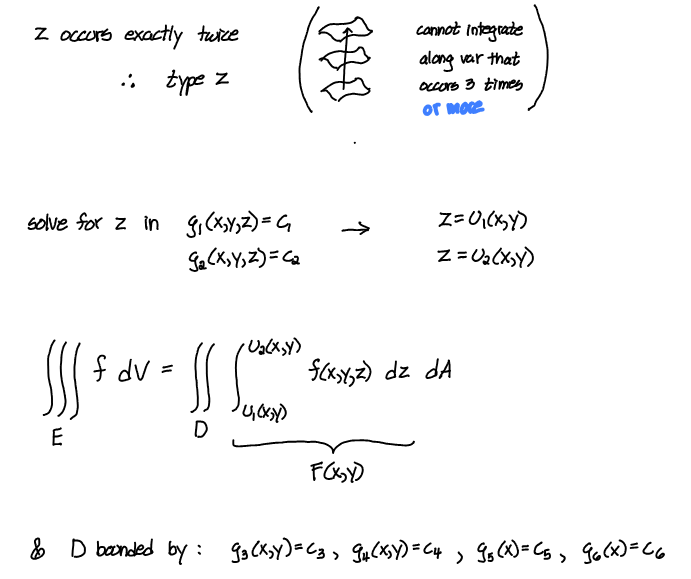 z occurs exactly twice
∴ type z
cannot integrate
along var that
occurs 3 times
or more
solve for z in g₁(x,y,z)=c₁ → z=u₁(x,y)
g₂(x,y,z)=c₂ z=u₂(x,y)
∭_E f dV = ∬_D ∫_{u₁(x,y)}^{u₂(x,y)} f(x,y,z) dz dA
F(x,y)
& D bounded by: g₃(x,y)=c₃, g₄(x,y)=c₄, g₅(x)=c₅, g₆(x)=c₆